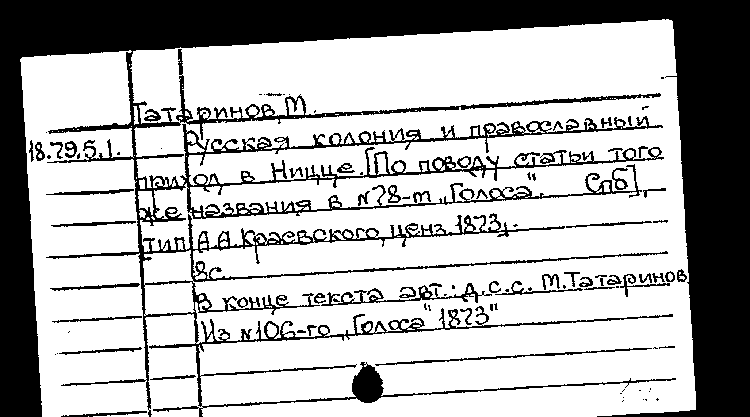 Татаринов, М.
18.79.5.1. Русская колония и православный
приход в Ницце. [По поводу статьи того
же названия в №78-м „Голоса". Спб],
тип. А.А. Краевского, ценз. 1873.
8с.
В конце текста авт.: д.с.с. М.Татаринов
„Из №106-го „Голоса" 1873"